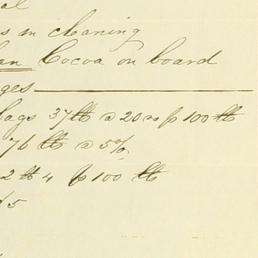 al
s in cleaning
an Cocoa on board
ges
bags 37 lb @ 20 rs p 100 lb
76 lb @ 5%
2 lb 4 p 100 lb
5